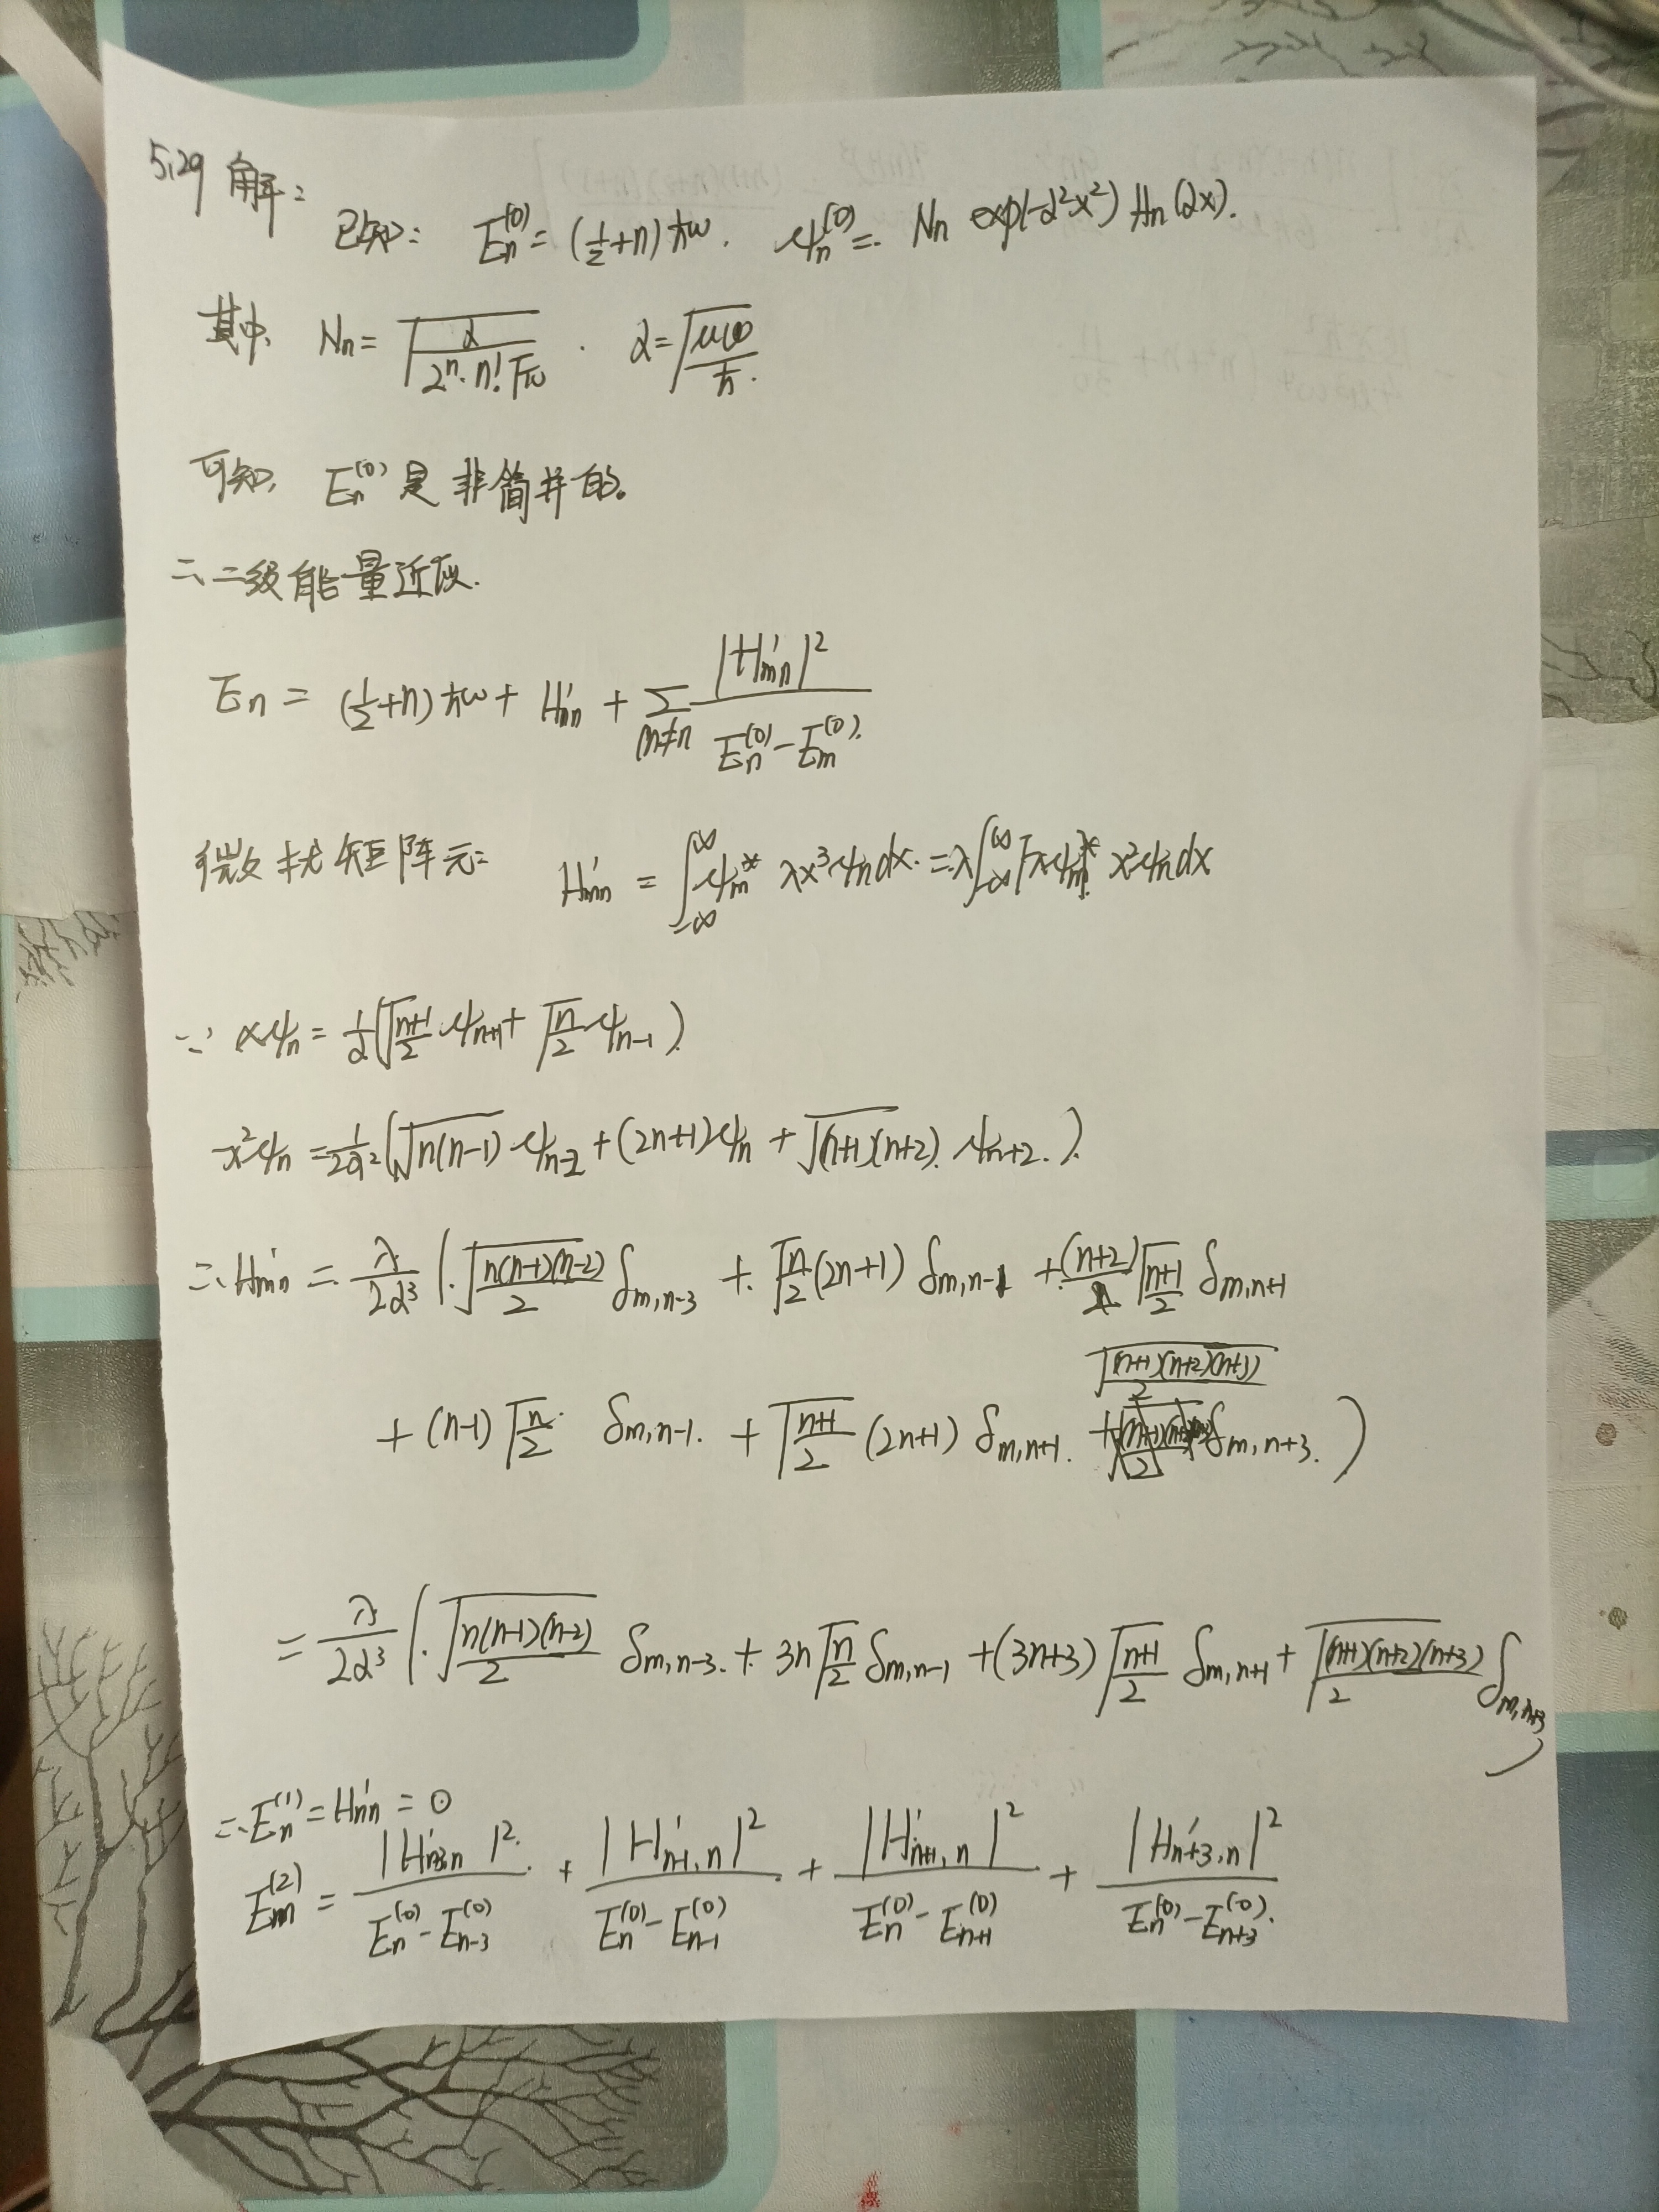 5.29 解:
已知: Eₙ⁽⁰⁾ = (1/2+n)ħω. ψₙ⁽⁰⁾ = Nₙ exp(-α²x²) Hₙ(αx).
其中, Nₙ = √(α/(2ⁿ·n!√π)) . α = √(μω/ħ).
可知, Eₙ⁽⁰⁾ 是非简并的。
二、二级能量近似.
Eₙ = (1/2+n)ħω + H'ₙₙ + Σ_{m≠n} |H'ₘₙ|²/(Eₙ⁽⁰⁾-Eₘ⁽⁰⁾)
微扰矩阵元: H'ₘₙ = ∫_{-∞}^{∞} ψₘ* λx³ψₙdx. = λ∫_{-∞}^{∞} [xψₘ]* x²ψₙdx
∵ xψₙ = 1/α(√((n+1)/2) ψₙ₊₁ + √(n/2) ψₙ₋₁)
x²ψₙ = 1/(2α²)(√(n(n-1)) ψₙ₋₂ + (2n+1)ψₙ + √((n+1)(n+2)) ψₙ₊₂.)
∴ H'ₘₙ = λ/(2α³) (√(n(n-1)(n-2)/2) δ_{m,n-3} + √(n/2)(2n+1) δ_{m,n-1} + (n+2)√((n+1)/2) δ_{m,n+1}
+ (n-1)√(n/2) δ_{m,n-1} + √((n+1)/2)(2n+1) δ_{m,n+1} + √((n+1)(n+2)(n+3)/2) δ_{m,n+3})
= λ/(2α³) (√(n(n-1)(n-2)/2) δ_{m,n-3} + 3n√(n/2) δ_{m,n-1} + (3n+3)√((n+1)/2) δ_{m,n+1} + √((n+1)(n+2)(n+3)/2) δ_{m,n+3})
∴ Eₙ⁽¹⁾ = H'ₙₙ = 0
Eₘ⁽²⁾ = |H'_{n-3,n}|²/(Eₙ⁽⁰⁾-Eₙ₋₃⁽⁰⁾) + |H'_{n-1,n}|²/(Eₙ⁽⁰⁾-Eₙ₋₁⁽⁰⁾) + |H'_{n+1,n}|²/(Eₙ⁽⁰⁾-Eₙ₊₁⁽⁰⁾) + |H'_{n+3,n}|²/(Eₙ⁽⁰⁾-Eₙ₊₃⁽⁰⁾)